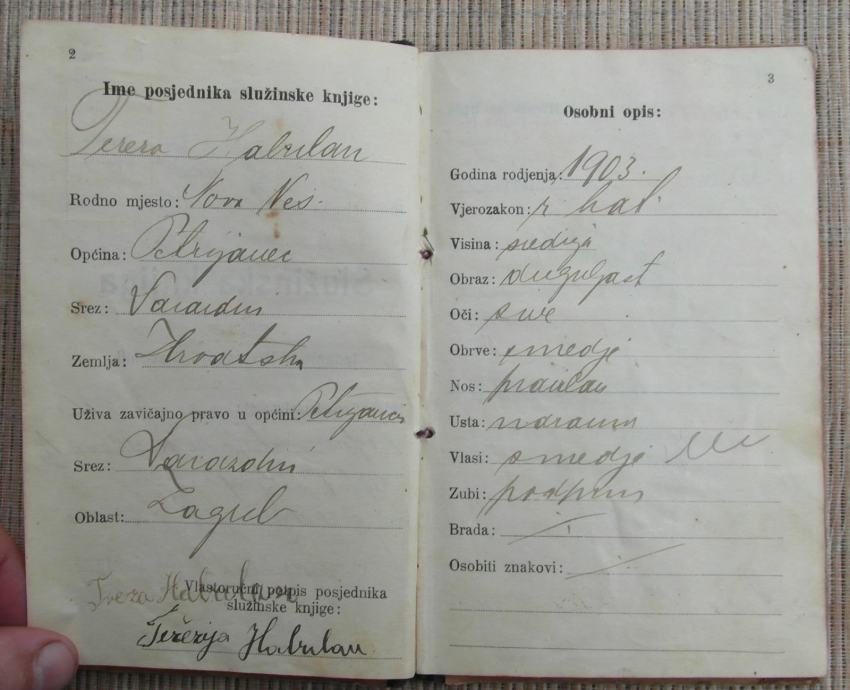 2
Ime posjednika služinske knjige:
Tereza Habulan
Rodno mjesto: Nova Ves.
Općina: Petrijanec
Srez: Varaždin
Zemlja: Hrvatska
Uživa zavičajno pravo u općini: Petrijanec
Srez: Varaždin
Oblast: Zagreb
Vlastoručni potpis posjednika
služinske knjige:
Habulan
3
Osobni opis:
Godina rodjenja: 1903.
Vjerozakon: r. kat.
Visina: srednja
Obraz: duguljast
Oči: sive
Obrve: smedje
Nos: pravilan
Usta:
Vlasi: smedje
Zubi: potpuni
Brada:
Osobiti znakovi: